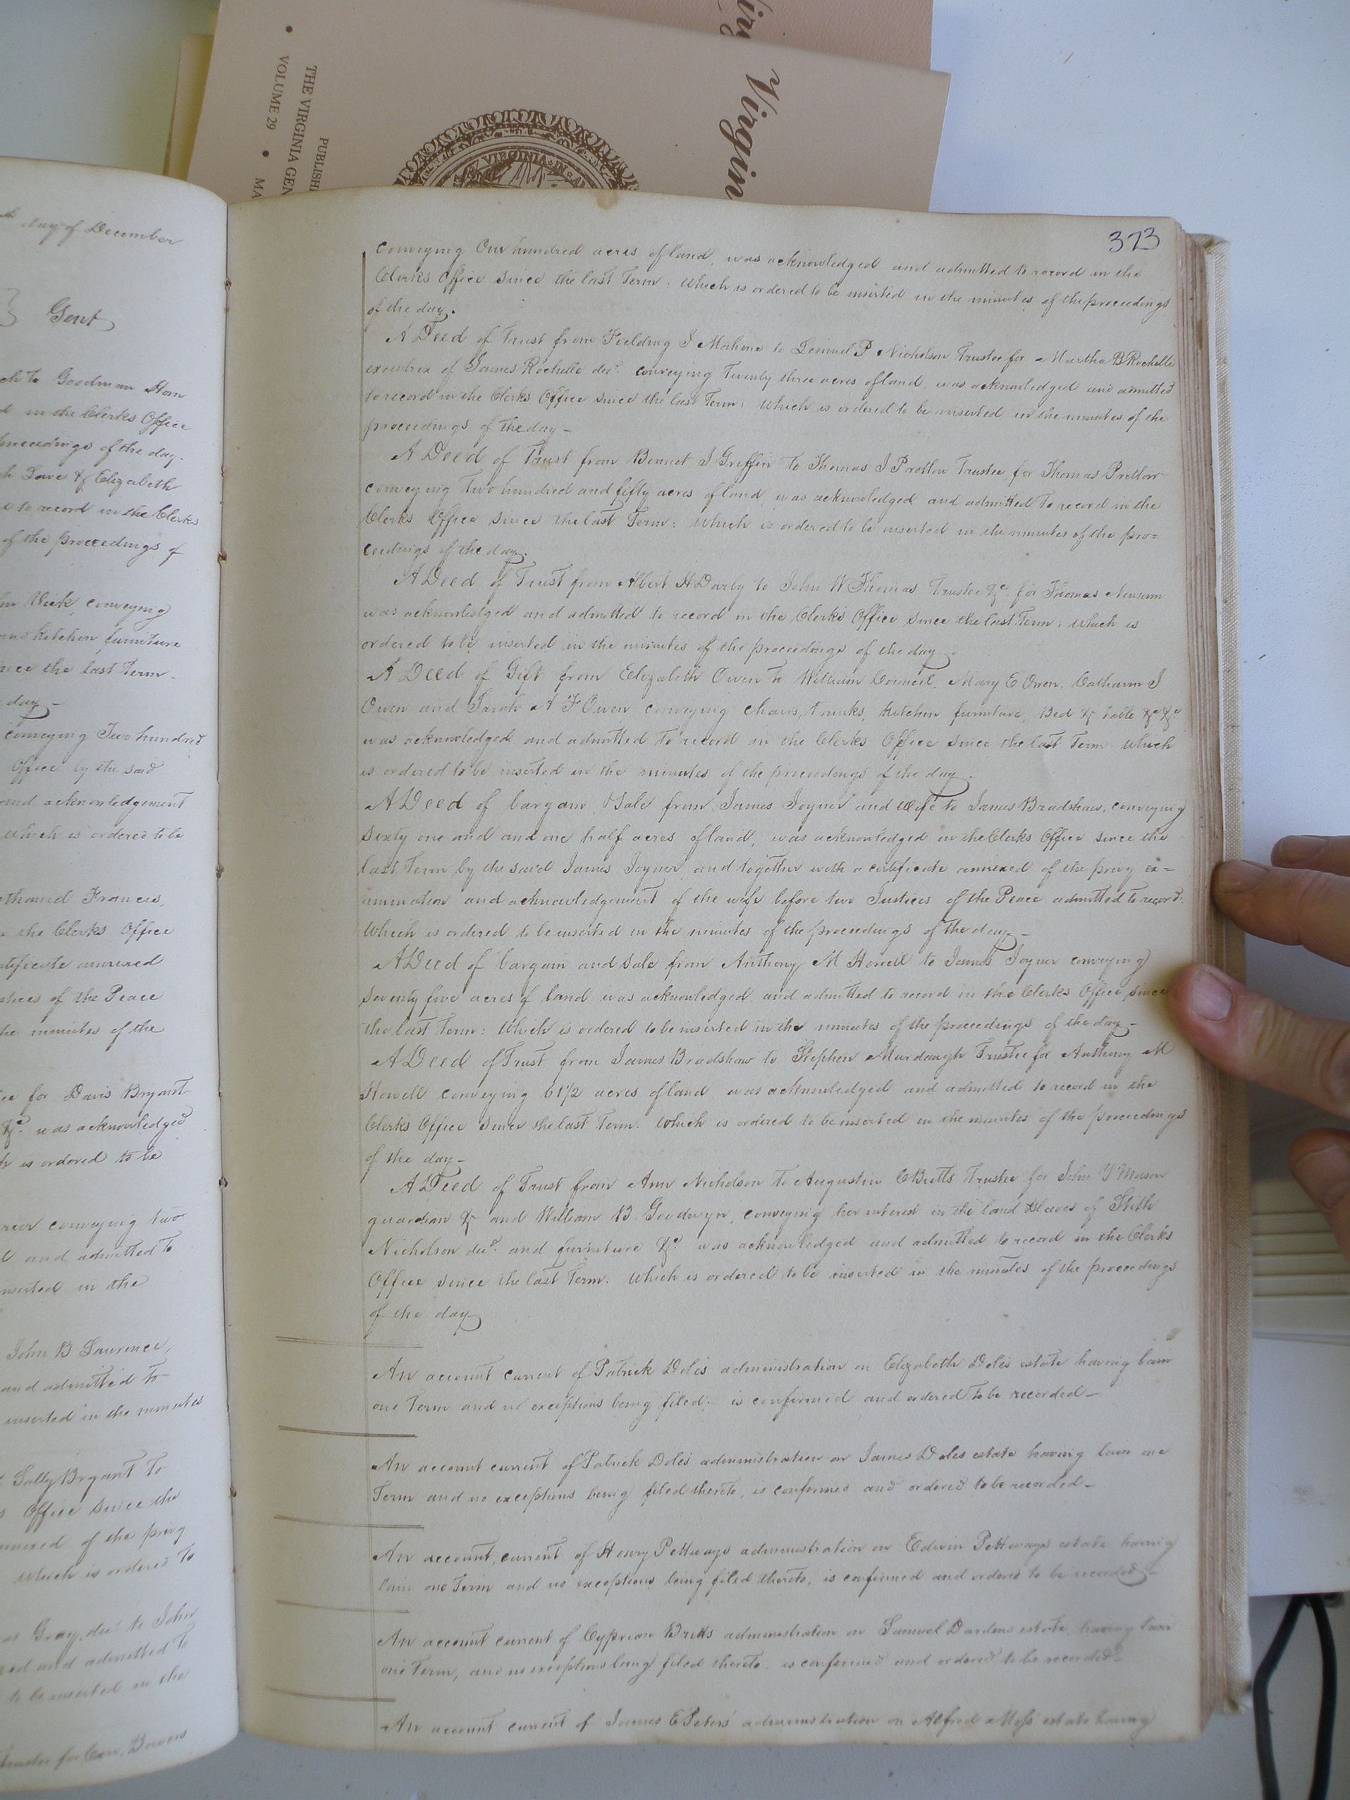 Virgin
THE VIRGINIA GEN
VOLUME 29
VIRGINIA
373
conveying One hundred acres of land, was acknowledged and admitted to record in the
Clerks Office since the last Term: Which is ordered to be inserted in the minutes of the proceedings
of the day.
A Deed of Trust from Fielding J Mahone to Lemuel P Nicholson Trustee for Martha B Rochelle
executrix of James Rochelle decd. conveying Twenty three acres of land, was acknowledged and admitted
to record in the Clerks Office since the last Term: Which is ordered to be inserted in the minutes of the
proceedings of the day—
A Deed of Trust from Bennet J Griffin to Thomas J Pretlow Trustee for Thomas Pretlow
conveying Two hundred and fifty acres of land was acknowledged and admitted to record in the
Clerks Office since the last Term: Which is ordered to be inserted in the minutes of the pro=
ceedings of the day.
A Deed of Trust from Albert H Darby to John W Thomas Trustee &c for Thomas Newsum
was acknowledged and admitted to record in the Clerks Office since the last Term: which is
ordered to be inserted in the minutes of the proceedings of the day.
A Deed of Gift from Elizabeth Owen to William Council, Mary E Owen, Catharine J
Owen and Sarah A F Owen conveying chairs, trunks, kitchen furniture, Bed & &c &c
was acknowledged and admitted to record in the Clerks Office since the last Term Which
is ordered to be inserted in the minutes of the proceedings of the day.
A Deed of bargain & Sale from James Joyner and wife to James Bradshaw, conveying
Sixty one and and one half acres of land, was acknowledged in the Clerks Office since the
last Term by the said James Joyner and together with a certificate annexed of the privy ex=
amination and acknowledgement of the wife before two Justices of the Peace admitted to record:
Which is ordered to be inserted in the minutes of the proceedings of the day—
A Deed of bargain and Sale from Anthony M Howell to James Joyner conveying
Seventy five acres of land was acknowledged and admitted to record in the Clerks Office, since
the last Term: Which is ordered to be inserted in the minutes of the proceedings of the day—
A Deed of Trust from James Bradshaw to Stephen Murdaugh Trustee for Anthony M
Howell conveying 61 1/2 acres of land was acknowledged and admitted to record in the
Clerks Office since the last Term. Which is ordered to be inserted in the minutes of the proceedings
of the day—
A Deed of Trust from Ann Nicholson to Augustin C Butts Trustee for John Y Mason
guardian & and William B Goodwyn, conveying her interest in the land slaves of Stith
Nicholson decd. and furniture &c was acknowledged and admitted to record in the Clerks
Office since the last Term. Which is ordered to be inserted in the minutes of the proceedings
of the day
An account current of Patrick Doles administration on Elizabeth Doles estate having lain
one Term and no exceptions being filed, is confirmed and ordered to be recorded—
An account current of Patrick Doles administration on James Doles estate having lain one
Term and no exceptions being filed thereto, is confirmed and ordered to be recorded—
An account current of Henry Pettways administration on Edwin Pettways estate having
lain one Term and no exceptions being filed thereto, is confirmed and ordered to be recorded—
An account current of Cyprian Britts administration on Samuel Dardens estate, having lain
one Term, and no exceptions being filed thereto is confirmed and ordered to be recorded—
An account current of James E Peters' administration on Alfred Moss' estate having
day of December
Gent
Goodman Horn
in the Clerks Office
proceedings of the day.
& Elizabeth
to record in the Clerks
of the proceedings of
conveying
kitchen furniture
since the last Term
day—
conveying Two hundred
Office by the said
and acknowledgement
which is ordered to be
Francis,
the Clerks Office
certificate annexed
Justices of the Peace
the minutes of the
for Davis Bryant
&c. was acknowledged
is ordered to be
conveying two
and admitted to
inserted in the
John B Lawrence,
and admitted to
inserted in the minutes
Sally Bryant to
Office since the
annexed of the privy
which is ordered to
Gray decd to John
and admitted to
to be inserted in the